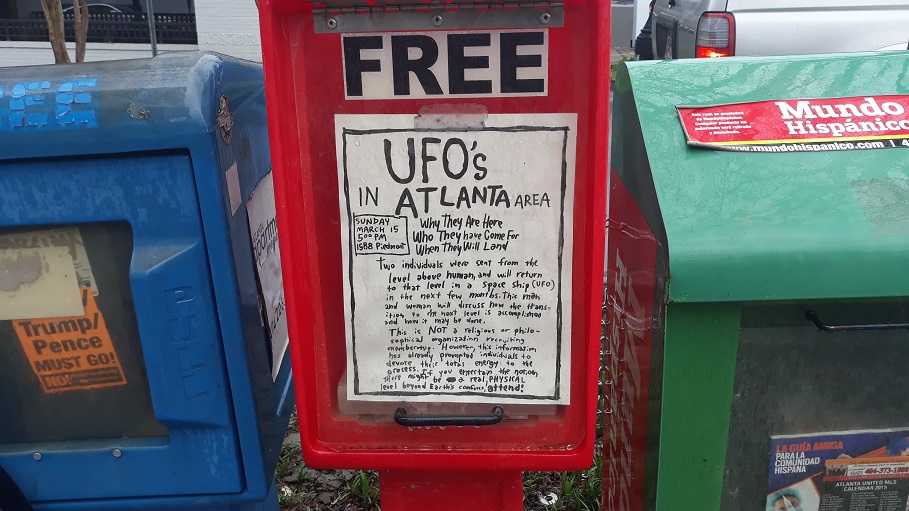 FREE
UFO's
IN ATLANTA AREA
SUNDAY
MARCH 15
5:00 PM
1588 Piedmont
Why They Are Here
Who They have Come For
When They Will Land
Two individuals were sent from the
level above human, and will return
to that level in a space ship (UFO)
in the next few months. This man
and woman will discuss how the trans-
ition to the next level is accomplished
and how it may be done.
This is NOT a religious or philo-
sophical organization recruiting
membership. However, this information
has already prompted individuals to
devote their total energy to the
process. If you entertain the notion,
there might be a real, PHYSICAL
level beyond Earth's confines, attend!
Trump/
Pence
MUST GO!
NO!
Mundo
Hispánico
www.mundohispanico.com | 4
LA GUÍA AMIGA
PARA LA
COMUNIDAD
HISPANA
404-373-1900
ATLANTA UNITED MLS
CALENDAR 2019